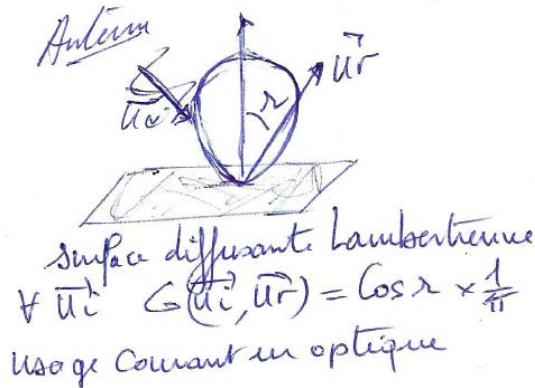 u⃗r
r
u⃗i
surface diffusante Lambertienne
∀ u⃗i G(u⃗i, u⃗r) = Cos r × 1/π
usage courant en optique